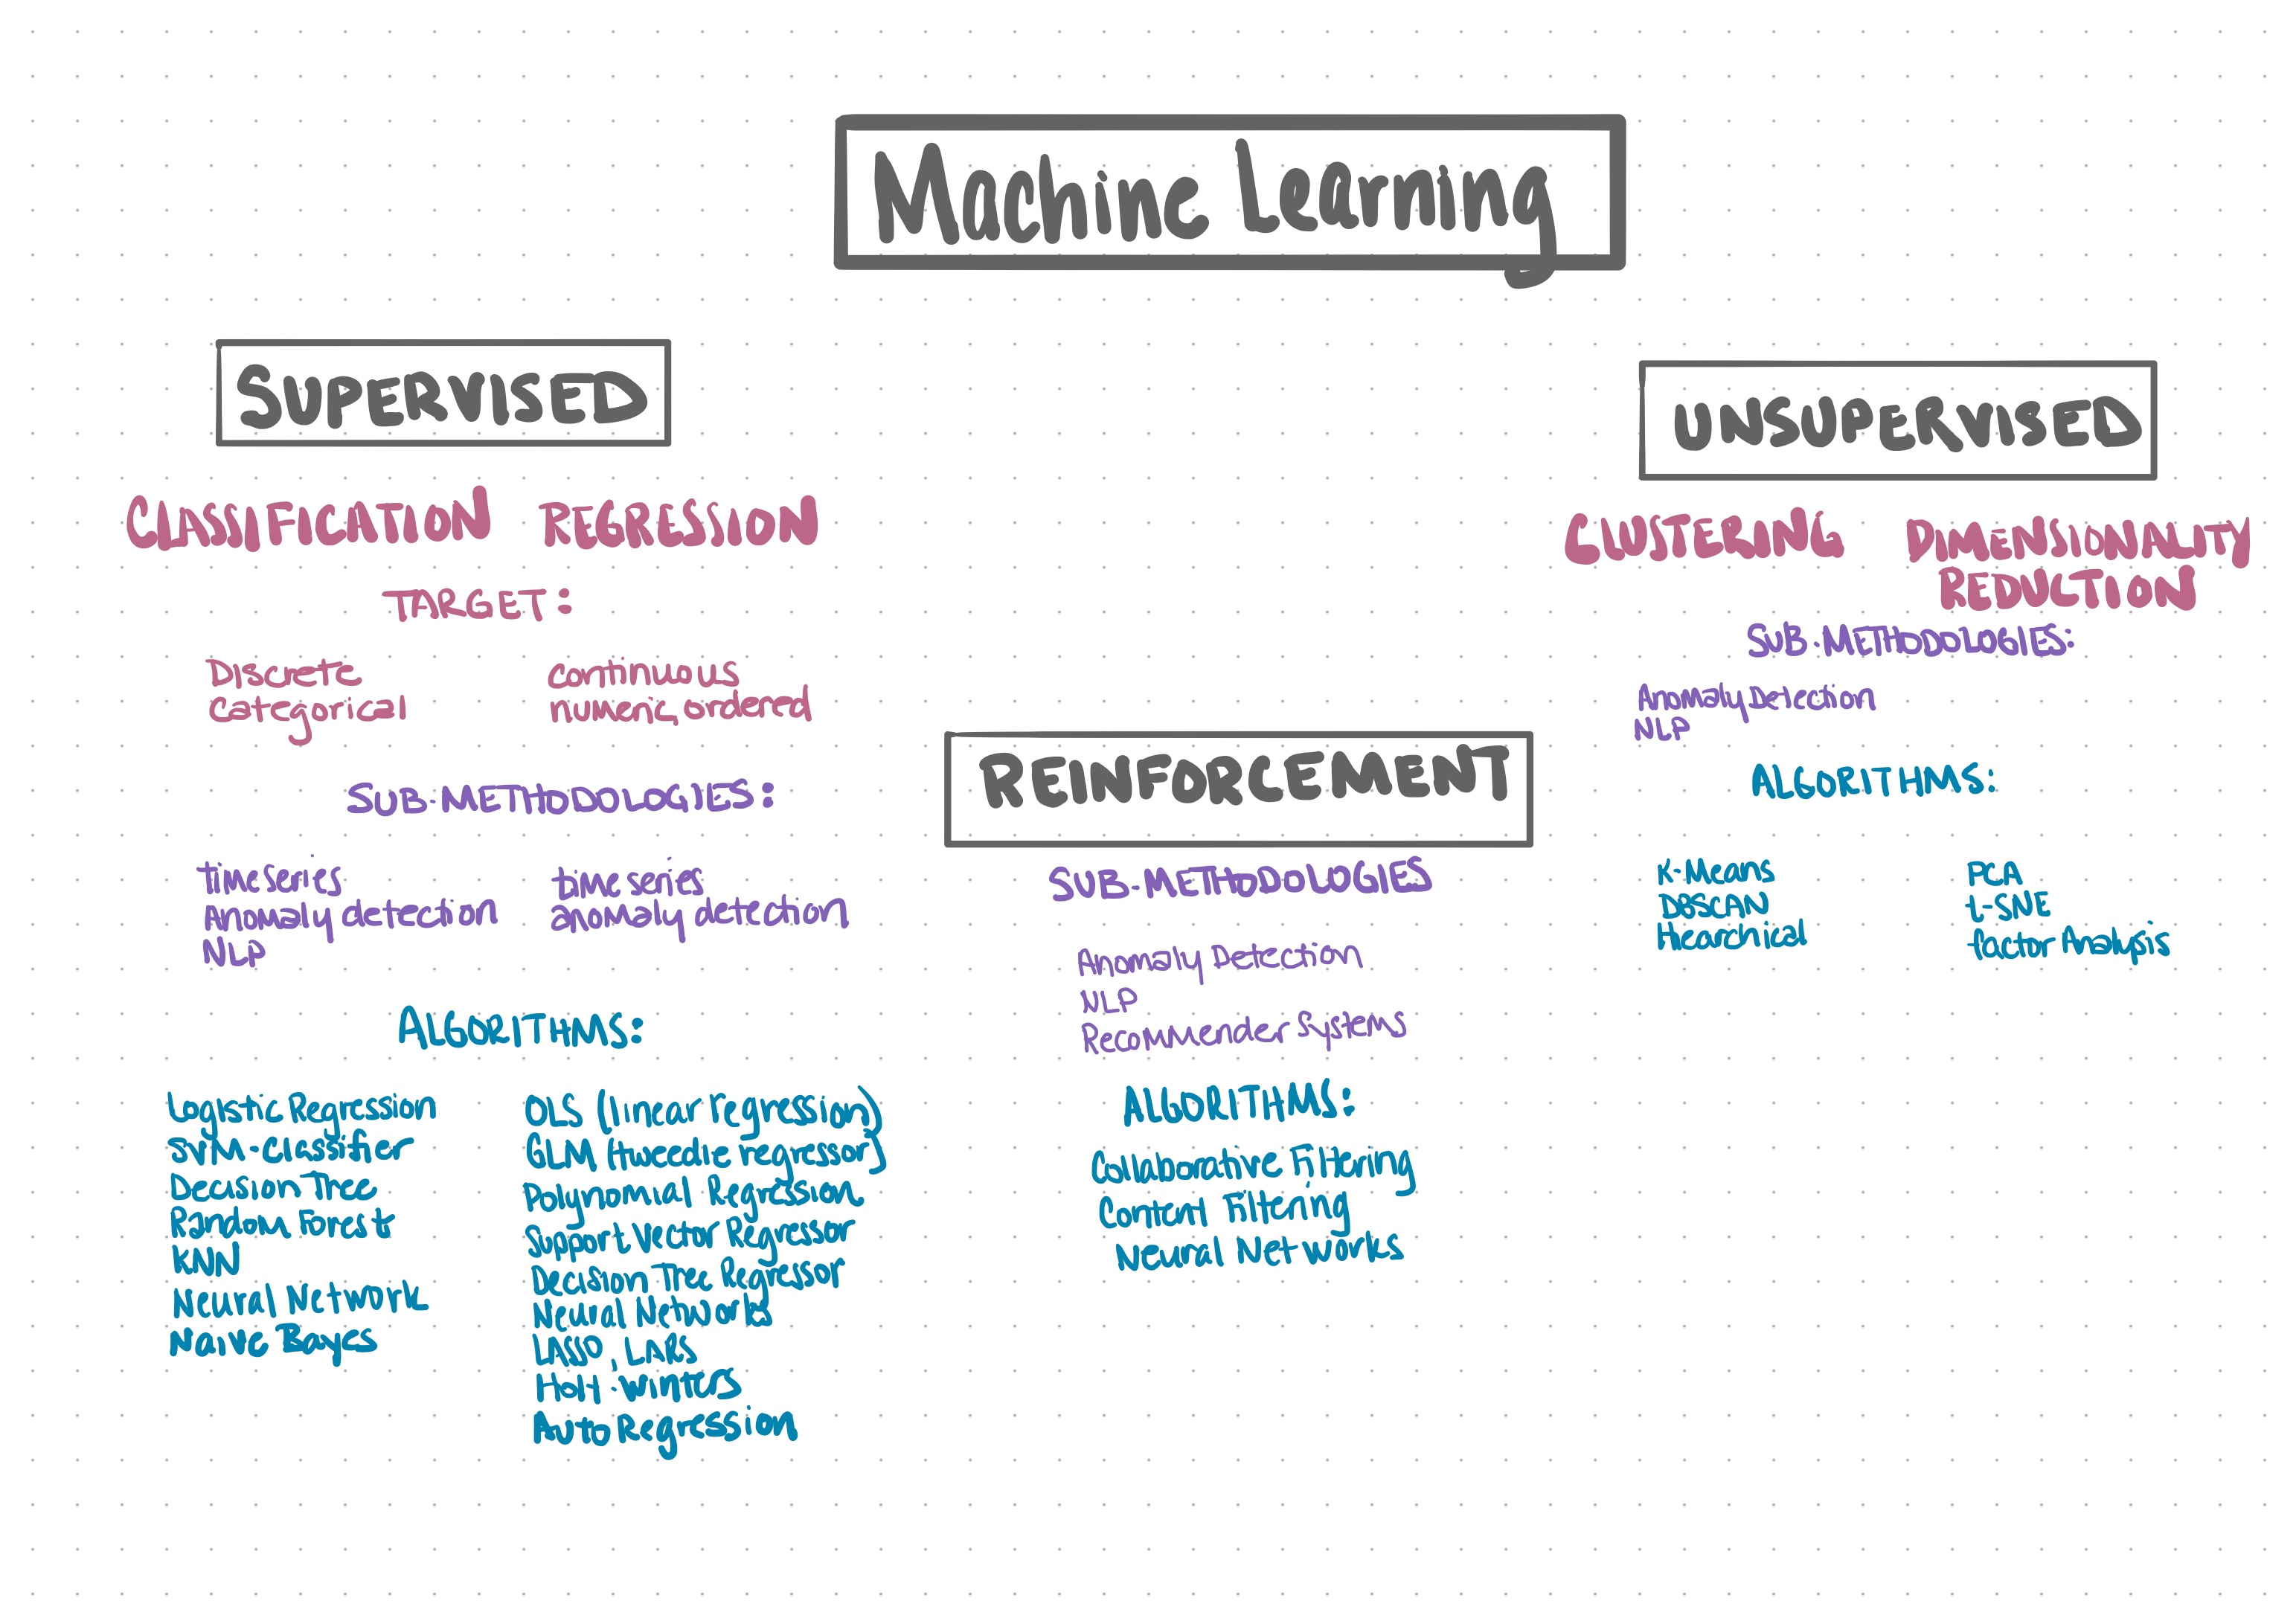 Machine Learning
SUPERVISED
CLASSIFICATION REGRESSION
TARGET:
Discrete
Categorical
continuous
numeric, ordered
SUB-METHODOLOGIES:
timeseries
Anomaly detection
NLP
time series
anomaly detection
ALGORITHMS:
Logistic Regression
SVM-Classifier
Decision Tree
Random Forest
KNN
Neural Network
Naive Bayes
OLS (linear regression)
GLM (tweedie regressor)
Polynomial Regression
Support Vector Regressor
Decision Tree Regressor
Neural Networks
LASSO, LARS
Holt-Winters
AutoRegression
REINFORCEMENT
SUB-METHODOLOGIES
Anomaly Detection
NLP
Recommender Systems
ALGORITHMS:
Collaborative Filtering
Content Filtering
Neural Networks
UNSUPERVISED
CLUSTERING
DIMENSIONALITY
REDUCTION
SUB-METHODOLOGIES:
Anomaly Detection
NLP
ALGORITHMS:
K-Means
DBSCAN
Hiearchical
PCA
t-SNE
factor Analysis